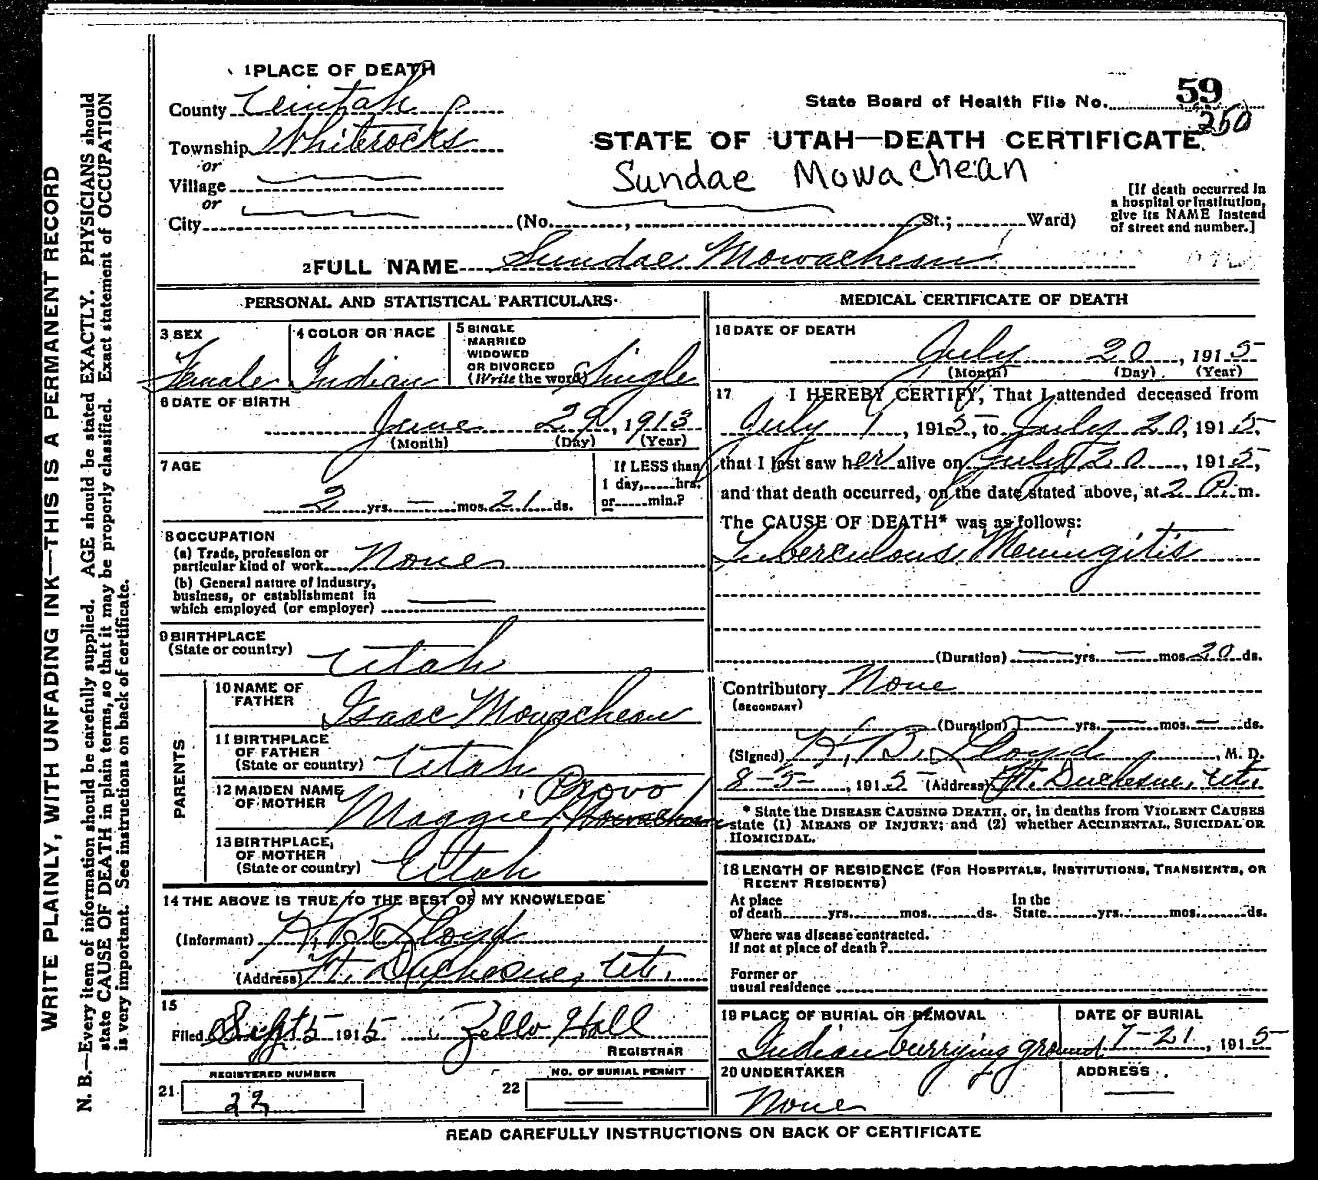 1 PLACE OF DEATH
County Uintah
State Board of Health File No. 59
250
Township Whiterocks
or
Village
or
City
STATE OF UTAH—DEATH CERTIFICATE
Sundae Mowachean
(No. , St.; Ward)
[If death occurred in
a hospital or institution,
give its NAME instead
of street and number.]
2 FULL NAME Sundae Mowachean
PERSONAL AND STATISTICAL PARTICULARS
3 SEX
Female
4 COLOR OR RACE
Indian
5 SINGLE
MARRIED
WIDOWED
OR DIVORCED
(Write the word) Single
6 DATE OF BIRTH
June 29, 1913
(Month) (Day) (Year)
7 AGE
2 yrs. — mos. 21 ds.
If LESS than
1 day, hrs.
or min.?
8 OCCUPATION
(a) Trade, profession or
particular kind of work None
(b) General nature of industry,
business, or establishment in
which employed (or employer)
9 BIRTHPLACE
(State or country) Utah
PARENTS
10 NAME OF
FATHER Isaac Mowachean
11 BIRTHPLACE
OF FATHER
(State or country) Utah
12 MAIDEN NAME
OF MOTHER Maggie Provo
13 BIRTHPLACE,
OF MOTHER
(State or country) Utah
14 THE ABOVE IS TRUE TO THE BEST OF MY KNOWLEDGE
(Informant) H. B. Lloyd
(Address) Ft. Duchesne, Ut.
15
Filed Sept 5 1915 Zello Hall
REGISTRAR
21 REGISTERED NUMBER
22
22 NO. OF BURIAL PERMIT
MEDICAL CERTIFICATE OF DEATH
16 DATE OF DEATH
July 20, 1915
(Month) (Day) (Year)
17 I HEREBY CERTIFY, That I attended deceased from
July 1, 1915, to July 20, 1915,
that I last saw her alive on July 20, 1915,
and that death occurred, on the date stated above, at 2 P. m.
The CAUSE OF DEATH* was as follows:
Tuberculous Meningitis
(Duration) — yrs. — mos. 20 ds.
Contributory None
(SECONDARY)
(Duration) — yrs. — mos. — ds.
(Signed) H. B. Lloyd, M. D.
8-5-, 1915 (Address) Ft. Duchesne, Ut.
* State the DISEASE CAUSING DEATH, or, in deaths from VIOLENT CAUSES
state (1) MEANS OF INJURY; and (2) whether ACCIDENTAL, SUICIDAL OR
HOMICIDAL.
18 LENGTH OF RESIDENCE (FOR HOSPITALS, INSTITUTIONS, TRANSIENTS, OR
RECENT RESIDENTS)
At place
of death yrs. mos. ds.
In the
State yrs. mos. ds.
Where was disease contracted.
If not at place of death?
Former or
usual residence
19 PLACE OF BURIAL OR REMOVAL
Indian burrying ground
DATE OF BURIAL
7-21, 1915
20 UNDERTAKER
None
ADDRESS
READ CAREFULLY INSTRUCTIONS ON BACK OF CERTIFICATE
WRITE PLAINLY, WITH UNFADING INK—THIS IS A PERMANENT RECORD
N. B.—Every item of information should be carefully supplied. AGE should be stated EXACTLY. PHYSICIANS should
state CAUSE OF DEATH in plain terms, so that it may be properly classified. Exact statement of OCCUPATION
is very important. See instructions on back of certificate.